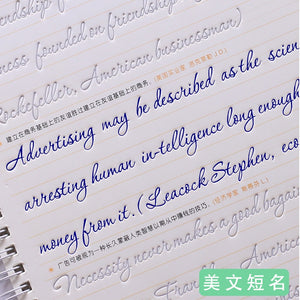 ness founded on friendship
Rockefeller, American businessman)
建立在商务基础上的友谊胜过建立在友谊基础上的商务。
Advertising may be described as the scien
arresting human in-telligence long enough
money from it. (Leacock Stephen, eco
广告可被描为一种长久掌嵌人类智慧以期从中赚钱的技巧。
Necessity never makes a good bagain
American
美文短名